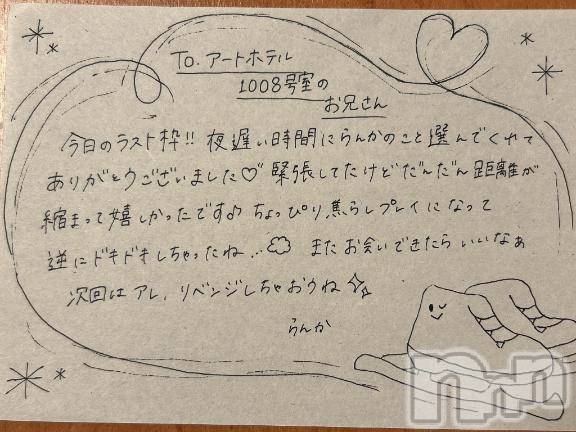 To. アートホテル
1008号室の
お兄さん
今日のラスト枠!! 夜遅い時間にらんかのこと選んでくれて
ありがとうございました♡ 緊張してたけどだんだん距離が
縮まって嬉しかったです♪ ちょっぴり焦らしプレイになって
逆にドキドキしちゃったね... またお会いできたらいいなぁ
次回はアレ、リベンジしちゃおうね
らんか